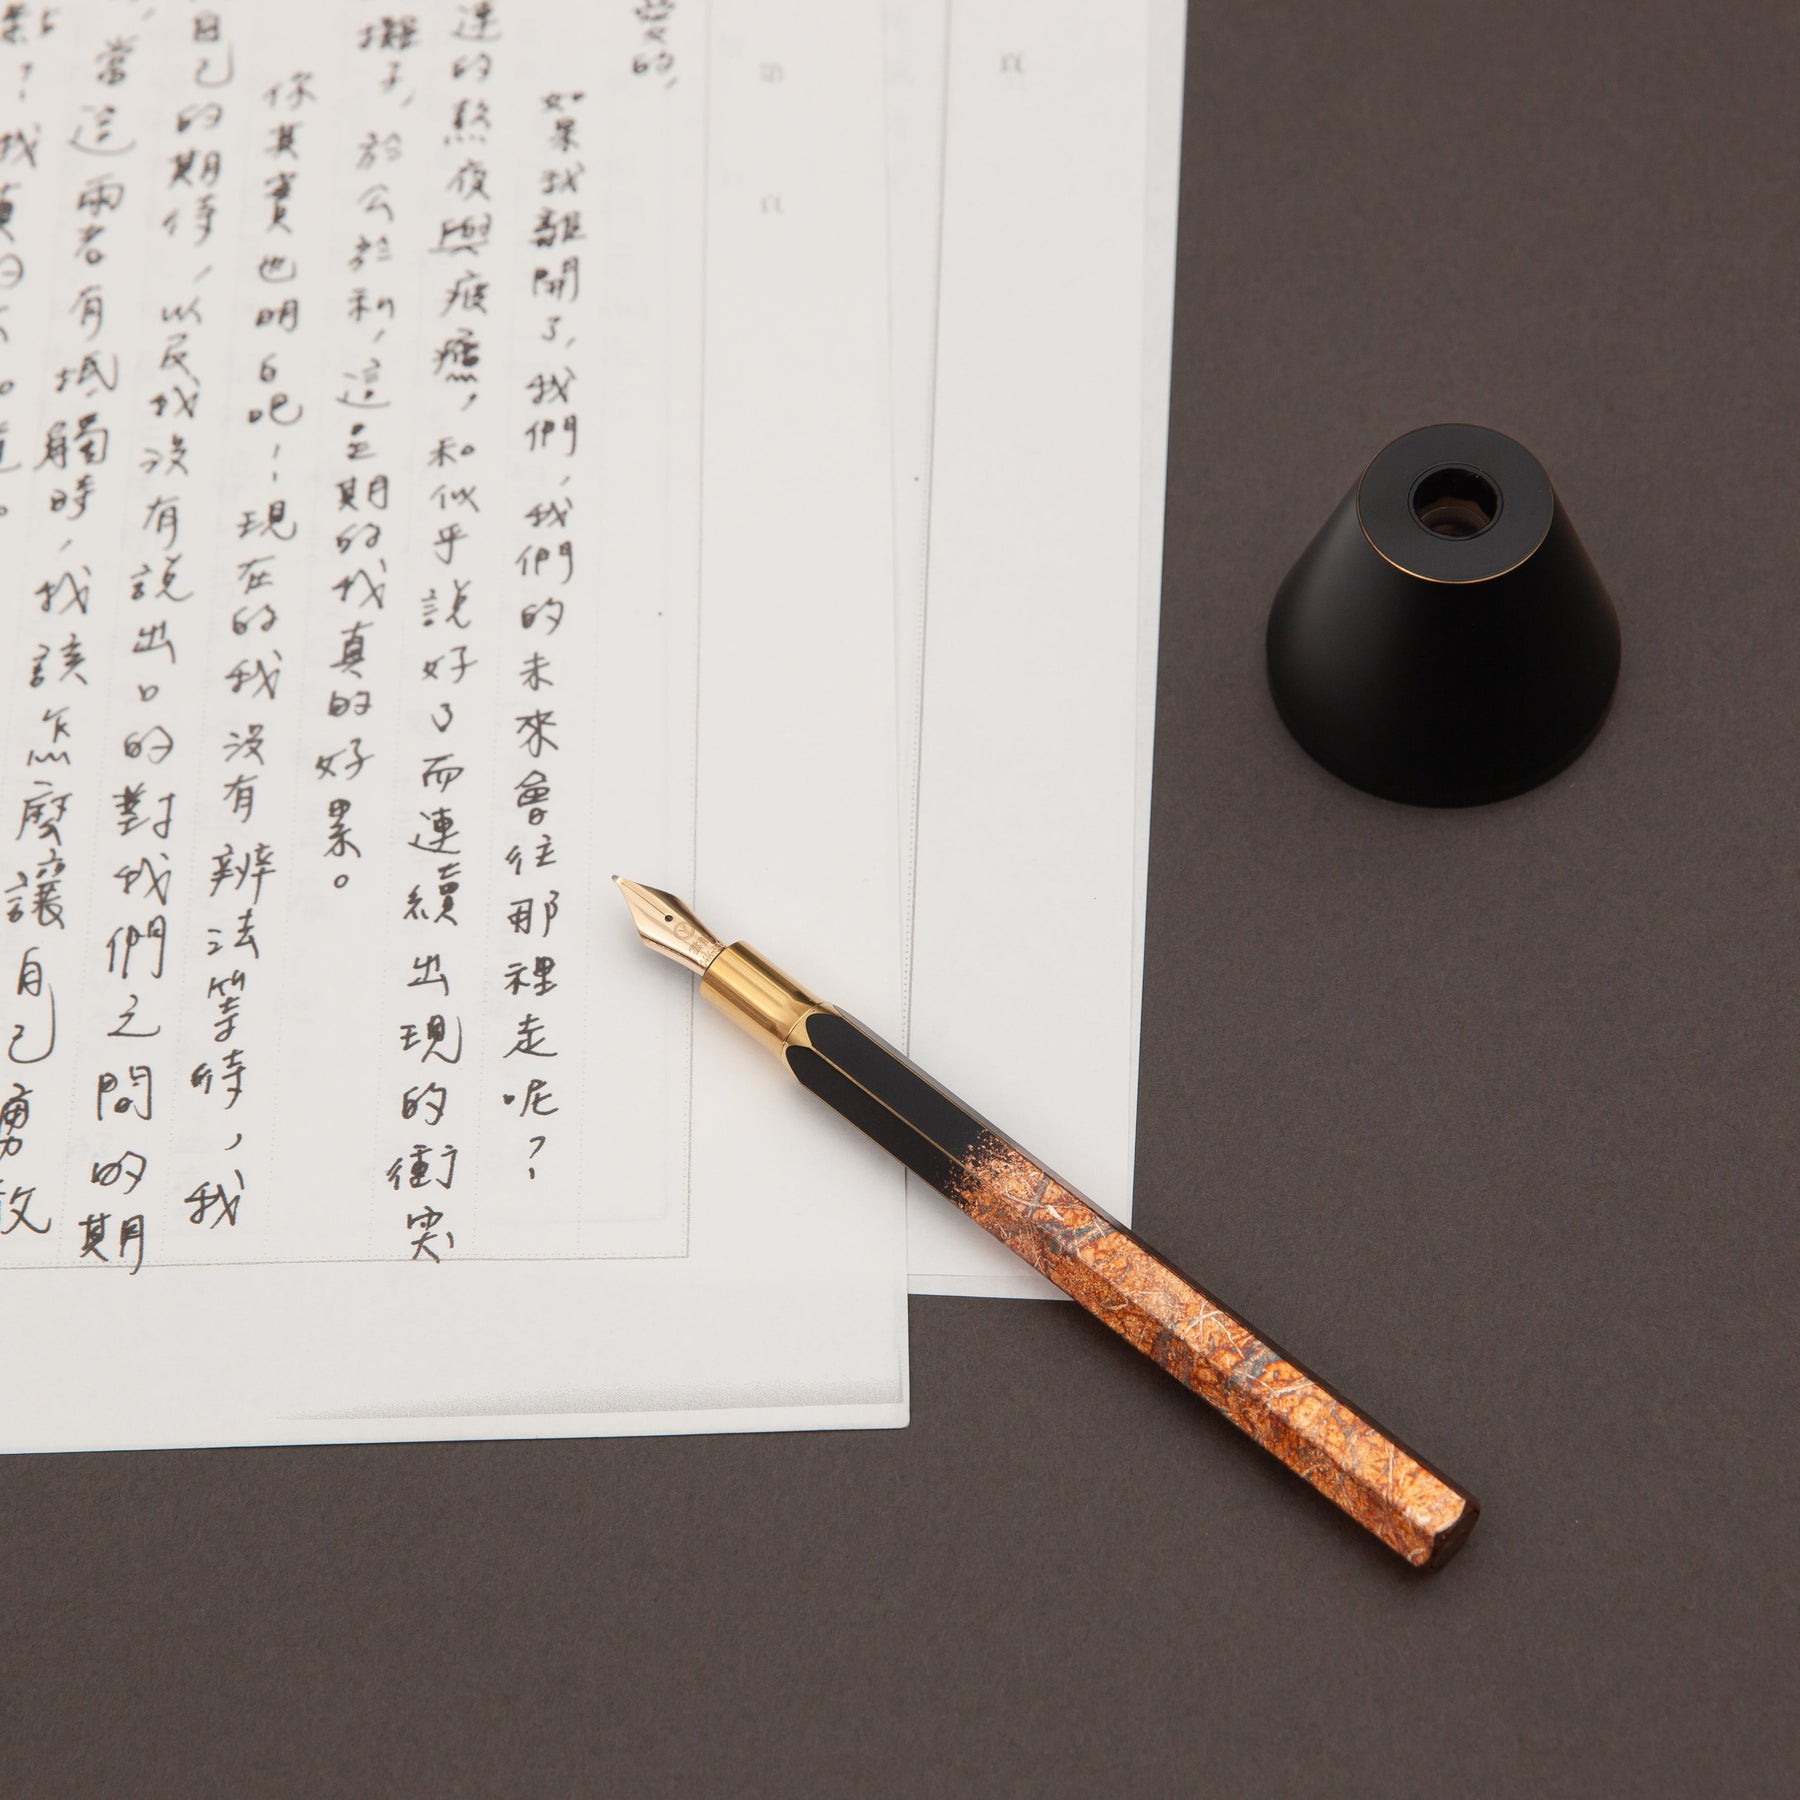 愛的，
如果我離開了，我們，我們的未來會往那裡走呢？
連的熬夜與疲憊，和似乎說好了而連續出現的衝突
擬子，於公於私，這星期的我真的好累。
你其實也明白吧！現在的我沒有辦法等待，我
自己的期待，以及我沒有說出口的對我們之間的期
當這兩者有抵觸時，我該怎麼讓自己勇敢
？我真的不知道。